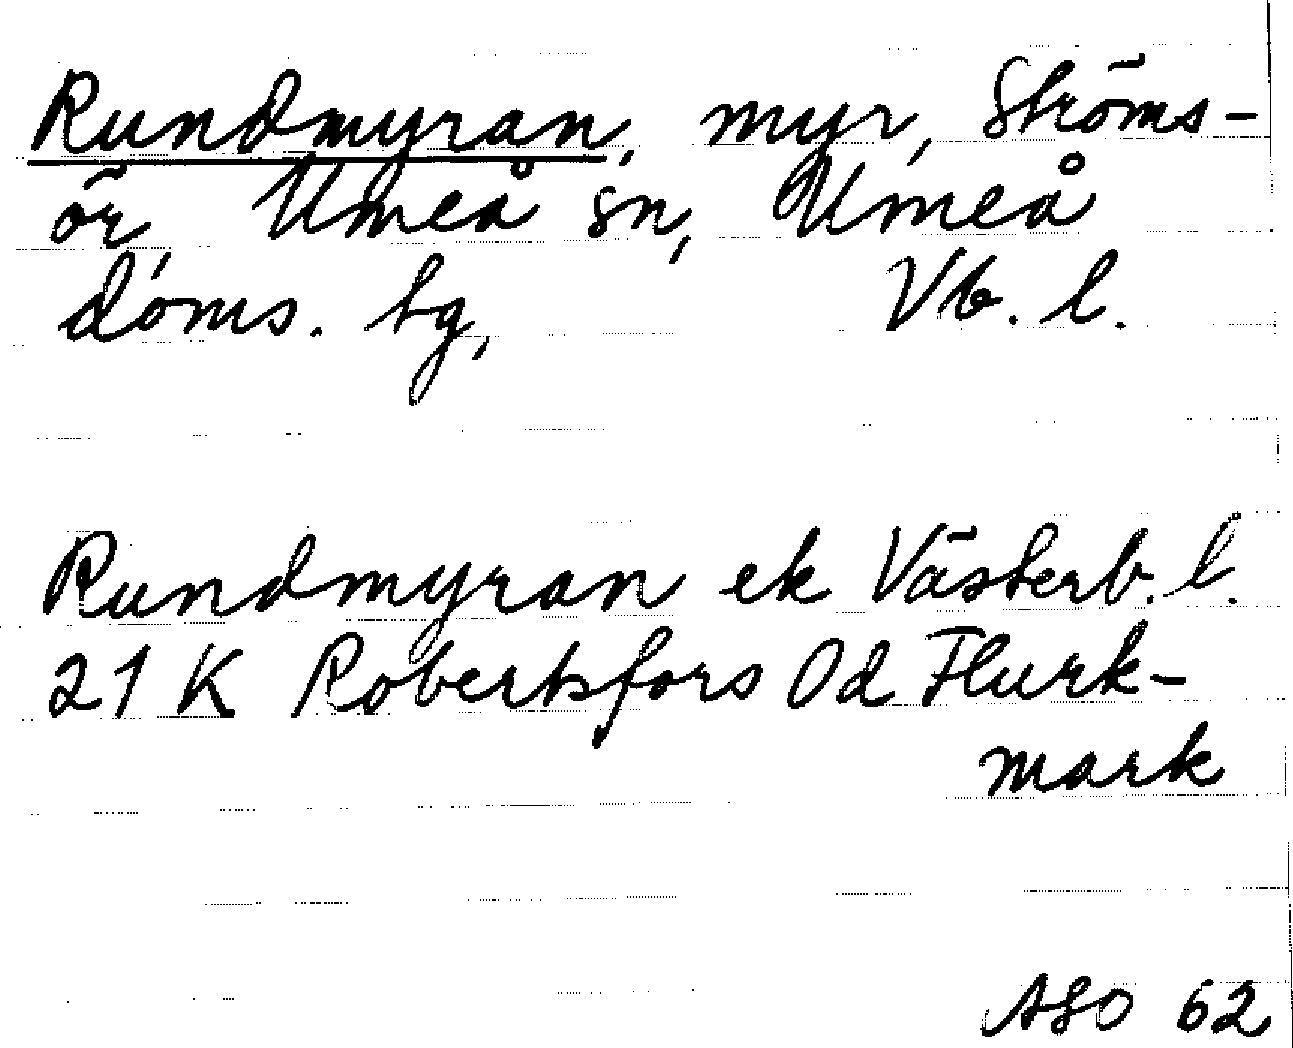 Rundmyran, myr, Ströms-
ör, Umeå sn, Umeå
doms. hg, Vb. l.
Rundmyran ek Västerb. l.
21 K Robertsfors 0d Flurk-
mark
ASO 62